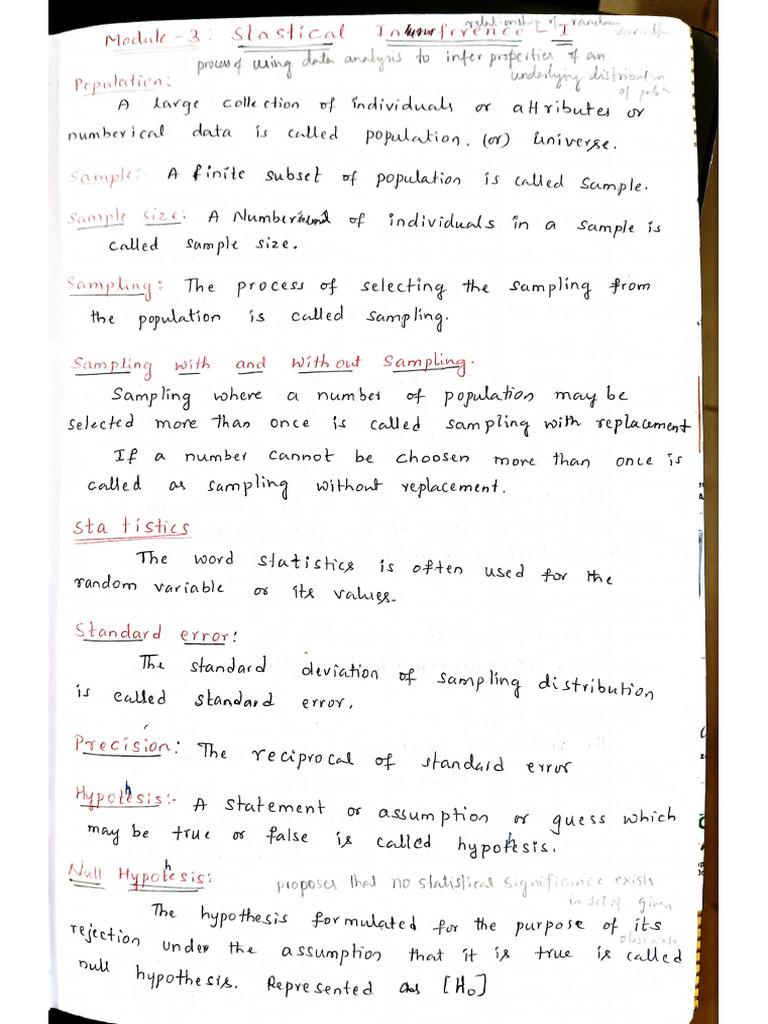 relationship of random
Module-3: Stastical Interference - I variable
process of using data analysis to infer properties of an
underlying distribution
of prob
Population:
A large collection of individuals or attributes or
numberical data is called population. (or) Universe.
Sample:- A finite subset of population is called Sample.
Sample size: A Number of individuals in a sample is
called sample size.
Sampling: The process of selecting the sampling from
the population is called sampling.
Sampling with and without Sampling.
Sampling where a number of population may be
selected more than once is called sampling with replacement
If a number cannot be choosen more than once is
called as sampling without replacement.
Statistics
The word statistics is often used for the
random variable or its values.
Standard error:
The standard deviation of sampling distribution
is called standard error.
Precision: The reciprocal of standard error
Hypothesis:- A statement or assumption or guess which
may be true or false is called hypothesis.
Null Hypothesis: proposes that no statistical significance exists
in set of given
The hypothesis formulated for the purpose of its
rejection under the assumption that it is true is called
null hypothesis. Represented as [H₀]